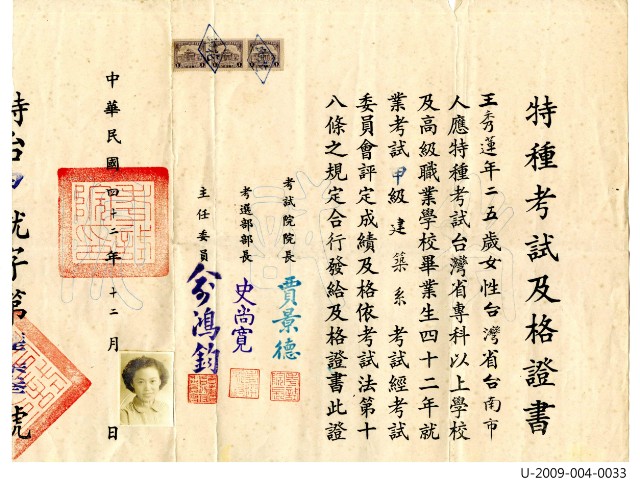 特種考試及格證書
王秀蓮年二五歲女性台灣省台南市
人應特種考試台灣省專科以上學校
及高級職業學校畢業生四十二年就
業考試甲級建築系考試經考試
委員會評定成績及格依考試法第十
八條之規定合行發給及格證書此證
考試院院長 賈景德
考選部部長 史尚寬
主任委員 俞鴻鈞
中華民國四十二年十二月 日
特台 就字第 號
U-2009-004-0033